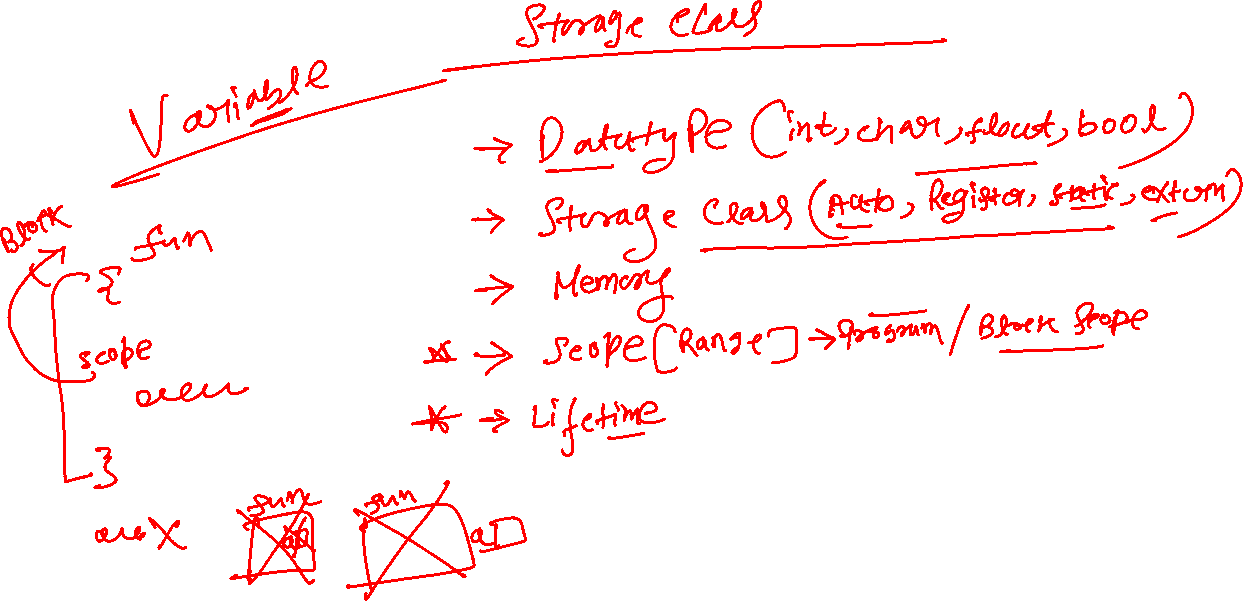 Storage class
Variable
→ Datatype (int, char, float, bool)
→ Storage class (Auto, Register, static, extern)
→ Memory
→ Scope [Range] → Program / Block Scope
→ Lifetime
Block
fun
{
scope
area
}
X
fun
fun
a